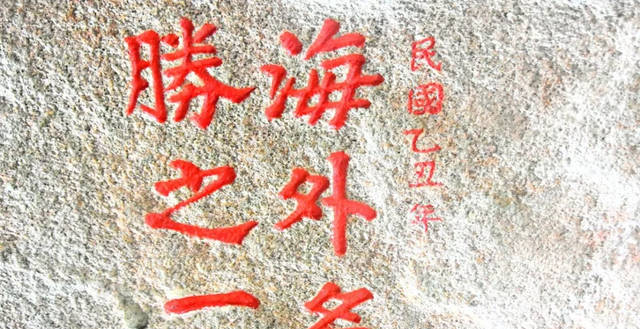 民國乙丑年
海外
勝之一